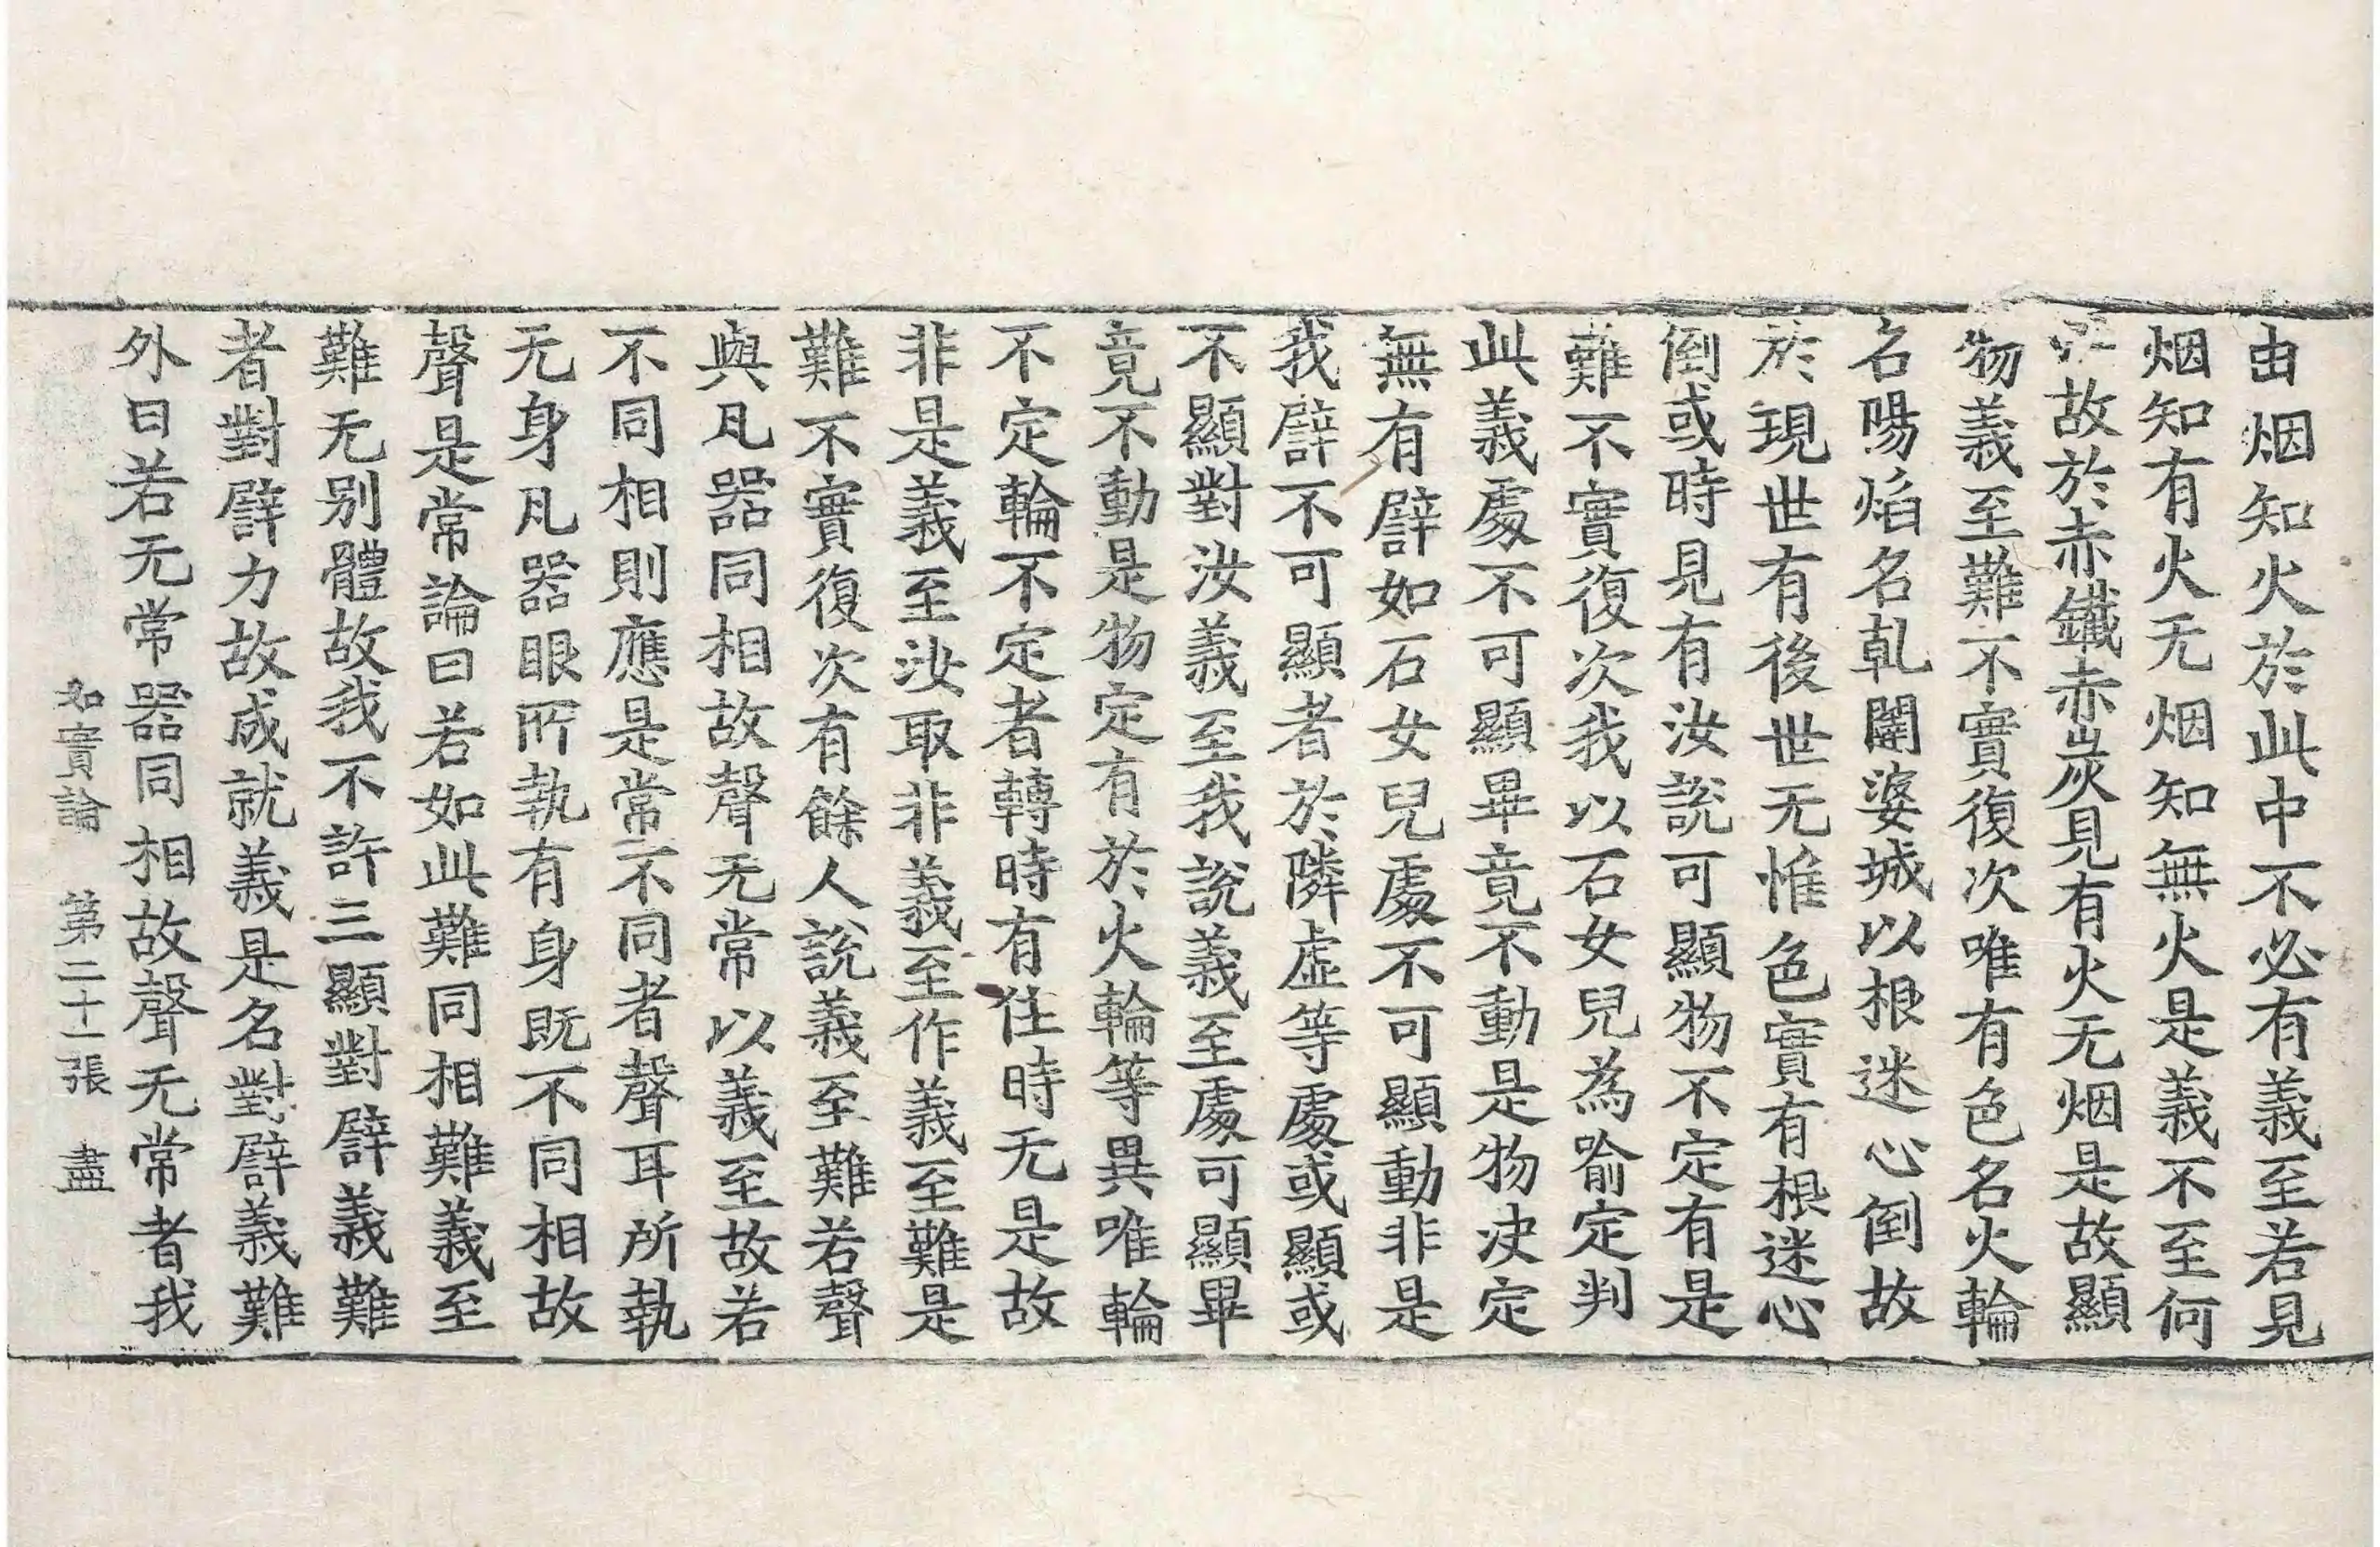 由烟知火於此中不必有義至若見
烟知有火无烟知無火是義不至何
故於赤鐵赤炭見有火无烟是故顯
物義至難不實復次唯有色名火輪
名陽焰名乹闥婆城以根迷心倒故
於現世有後世无惟色實有根迷心
倒或時見有汝說可顯物不定有是
難不實復次我以石女兒為喻定判
此義處不可顯畢竟不動是物決定
無有譬如石女兒處不可顯動非是
我譬不可顯者於隣虛等處或顯或
不顯對汝義至我說義至處可顯畢
竟不動是物定有於火輪等異唯輪
不定輪不定者轉時有住時无是故
非是義至汝取非義至作義至難是
難不實復次有餘人說義至難若聲
與凡器同相故聲无常以義至故若
不同相則應是常不同者聲耳所執
无身凡器眼所執有身既不同相故
聲是常論曰若如此難同相難義至
難无別體故我不許三顯對譬義難
者對譬力故成就義是名對譬義難
外曰若无常器同相故聲无常者我
如實論 第二十一張 盡